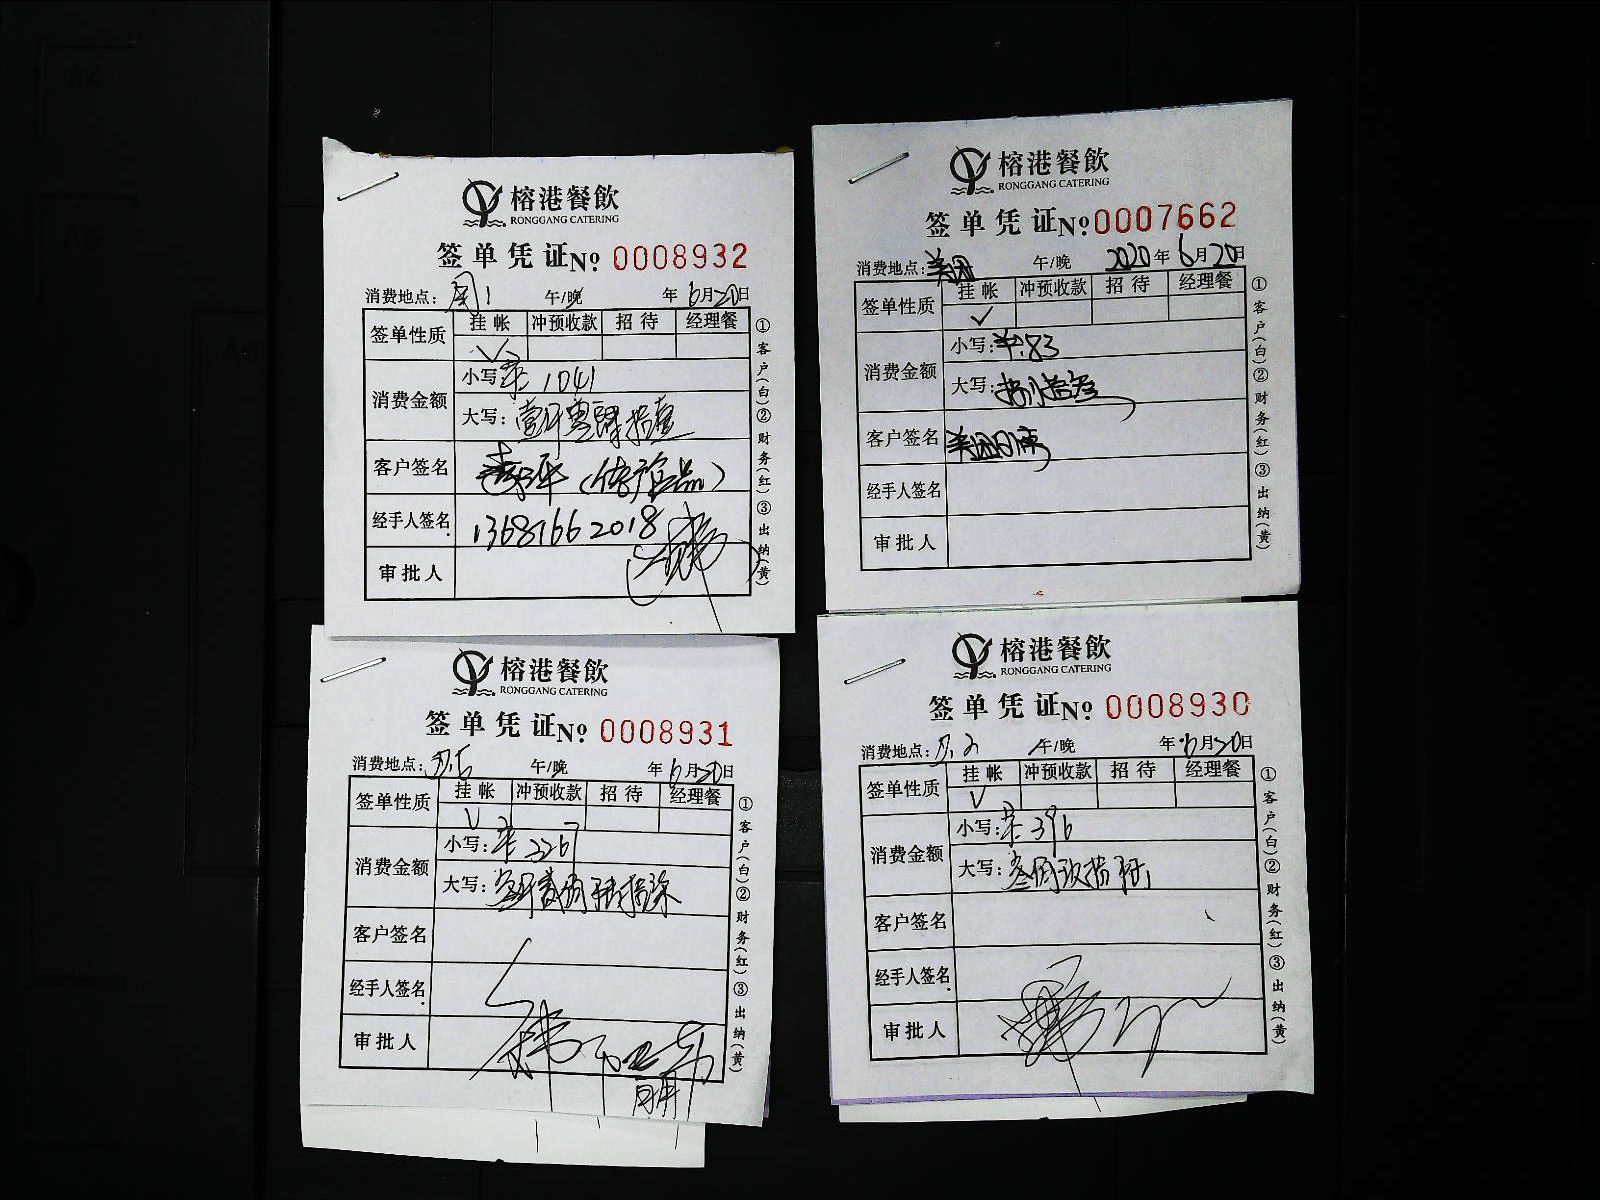 榕港餐飲
RONGGANG CATERING
签单凭证 No 0008932
消费地点： 午/晚 年 6月20日
签单性质 挂帐 冲预收款 招待 经理餐
✓
消费金额 小写： 1041
大写：壹仟零肆拾壹
客户签名
经手人签名 13687662018
审批人
①客户(白)②财务(红)③出纳(黄)
榕港餐飲
RONGGANG CATERING
签单凭证 No 0007662
消费地点：美团 午/晚 2020年6月20日
签单性质 挂帐 冲预收款 招待 经理餐
✓
消费金额 小写： 83
大写：捌拾叁
客户签名 美团
经手人签名
审批人
①客户(白)②财务(红)③出纳(黄)
榕港餐飲
RONGGANG CATERING
签单凭证 No 0008931
消费地点： 午/晚 年 6月20日
签单性质 挂帐 冲预收款 招待 经理餐
✓
消费金额 小写： 3267
大写：叁仟贰佰陆拾柒
客户签名
经手人签名
审批人
①客户(白)②财务(红)③出纳(黄)
榕港餐飲
RONGGANG CATERING
签单凭证 No 0008930
消费地点： 午/晚 年 6月20日
签单性质 挂帐 冲预收款 招待 经理餐
✓
消费金额 小写： 396
大写：叁佰玖拾陆
客户签名
经手人签名
审批人
①客户(白)②财务(红)③出纳(黄)